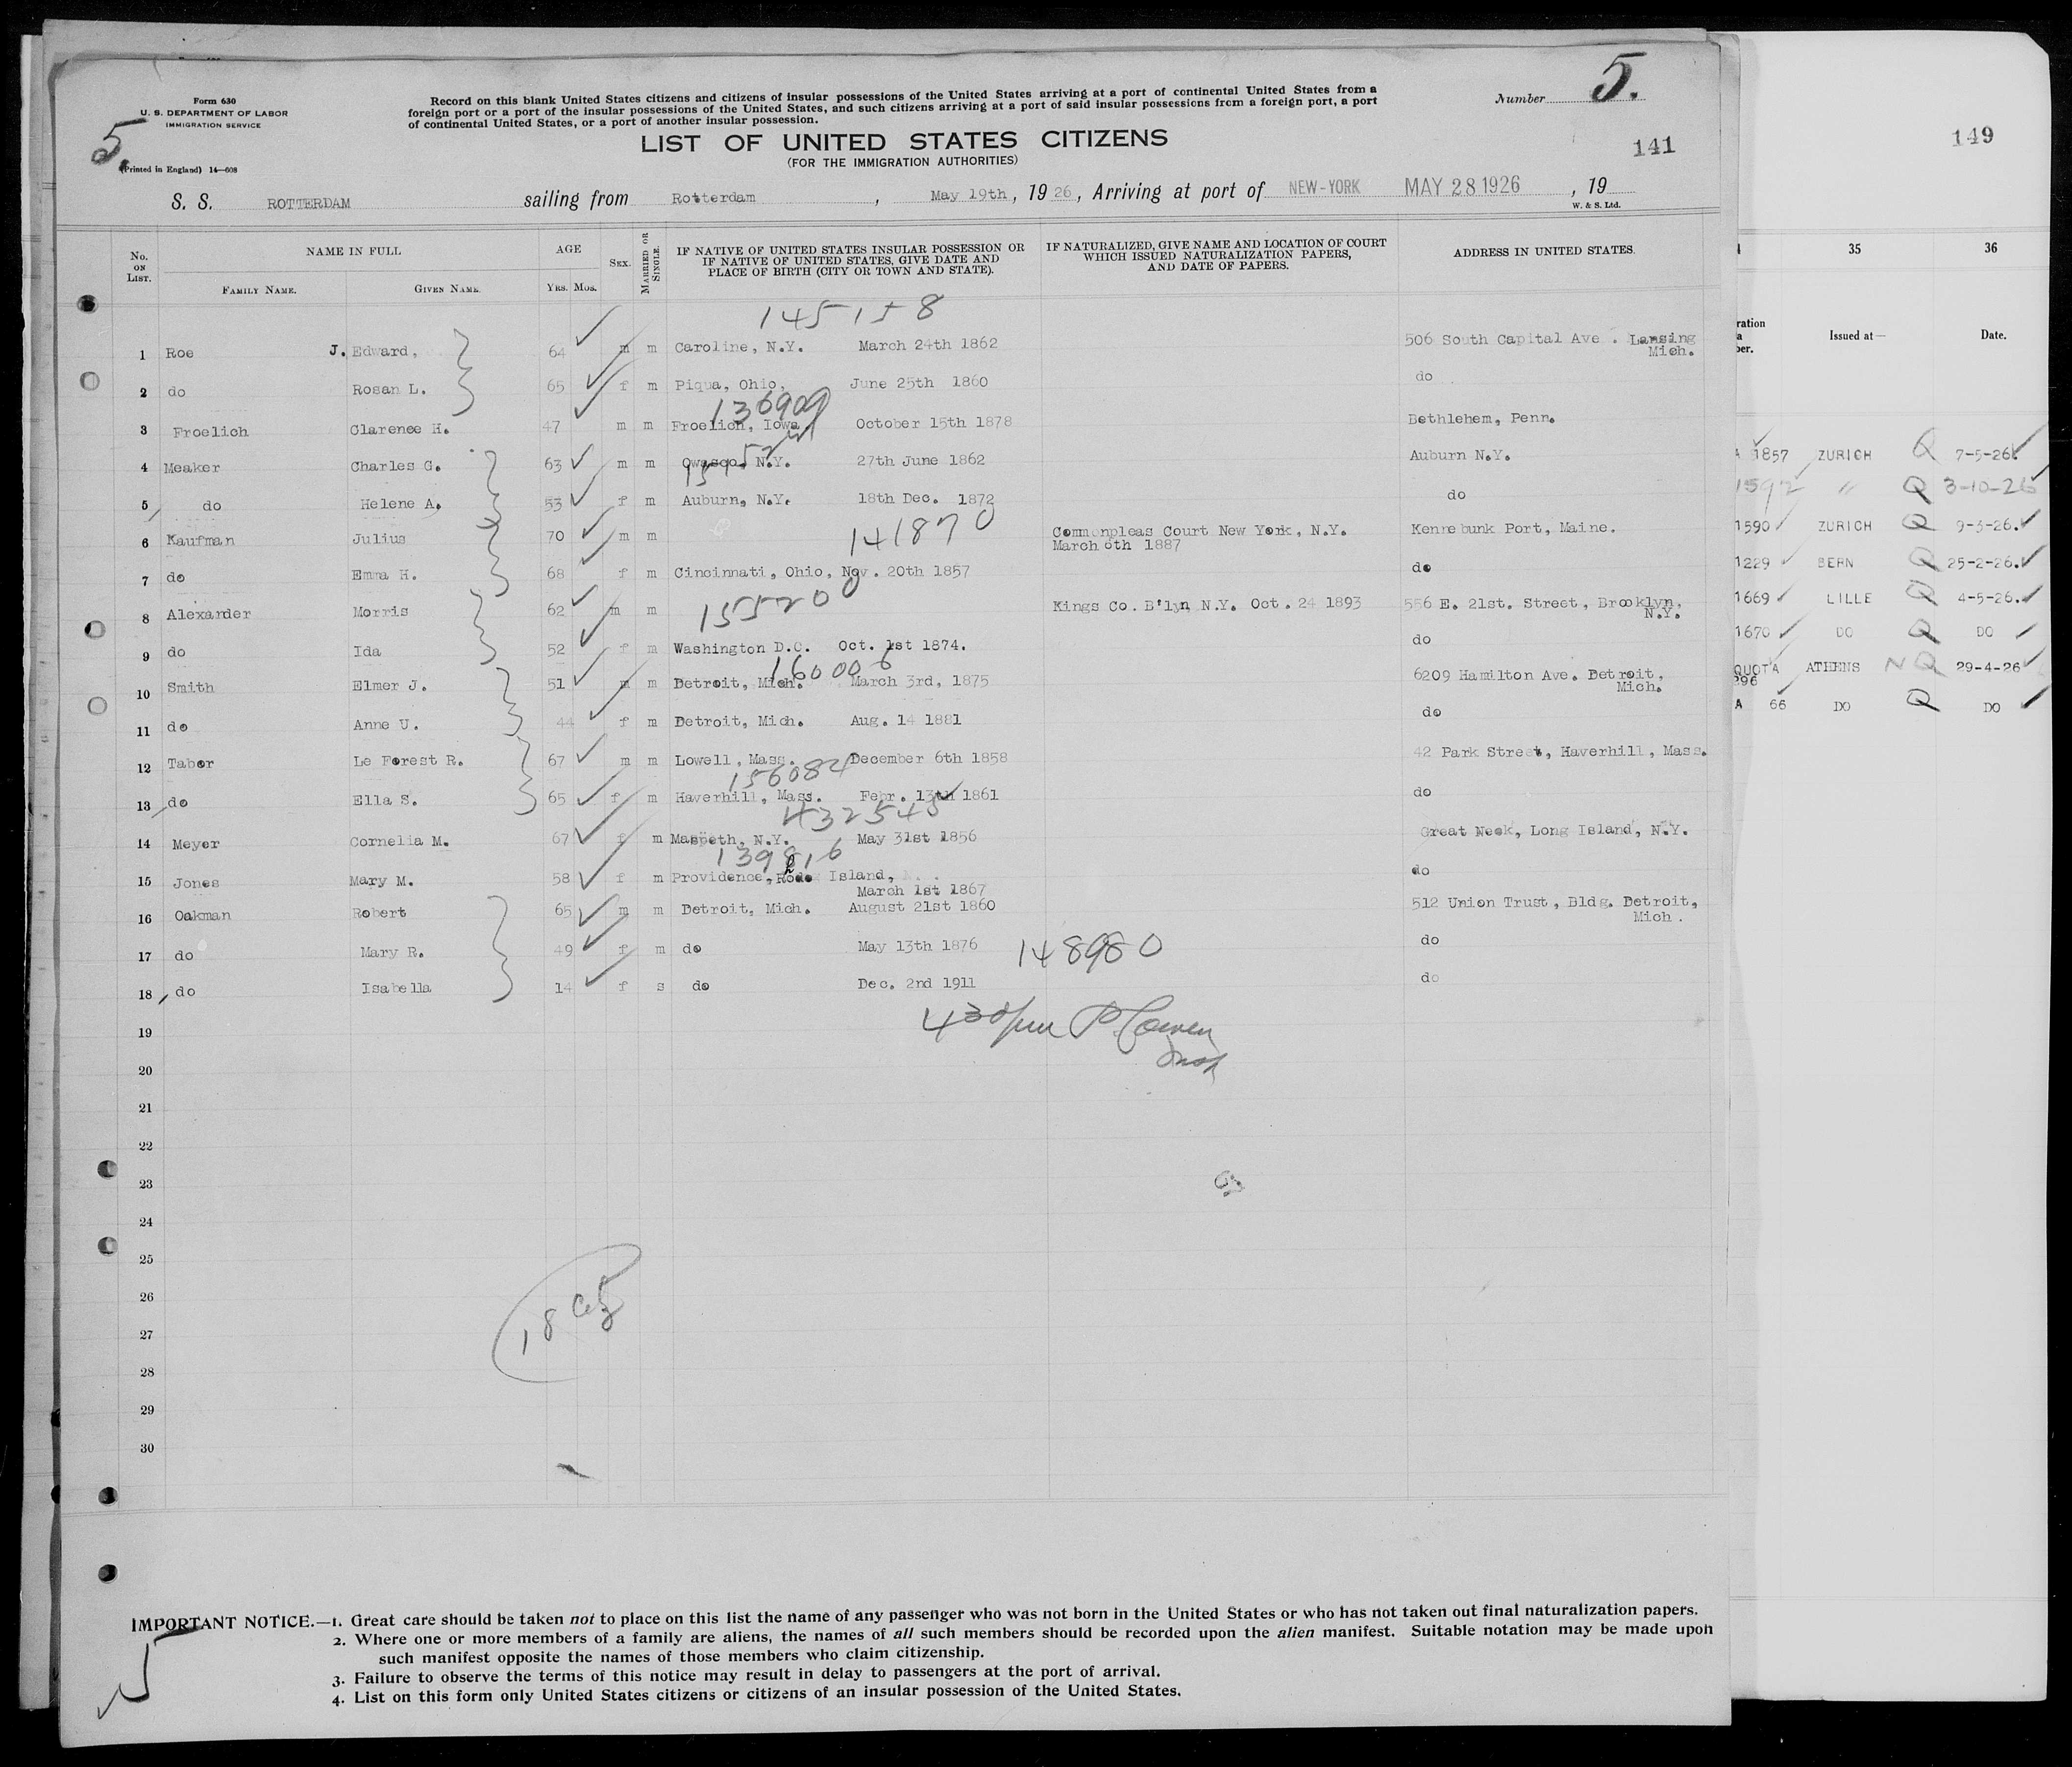 5.
Form 630
U. S. DEPARTMENT OF LABOR
IMMIGRATION SERVICE
5
(Printed in England) 14—608
Record on this blank United States citizens and citizens of insular possessions of the United States arriving at a port of continental United States from a
foreign port or a port of the insular possessions of the United States, and such citizens arriving at a port of said insular possessions from a foreign port, a port
of continental United States, or a port of another insular possession.
Number
LIST OF UNITED STATES CITIZENS
(FOR THE IMMIGRATION AUTHORITIES)
141
S. S. ROTTERDAM sailing from Rotterdam , May 19th, 19 26, Arriving at port of NEW-YORK MAY 28 1926 , 19
W. & S. Ltd.
No. ON LIST. NAME IN FULL AGE SEX. MARRIED OR SINGLE. IF NATIVE OF UNITED STATES INSULAR POSSESSION OR IF NATIVE OF UNITED STATES, GIVE DATE AND PLACE OF BIRTH (CITY OR TOWN AND STATE). IF NATURALIZED, GIVE NAME AND LOCATION OF COURT WHICH ISSUED NATURALIZATION PAPERS, AND DATE OF PAPERS. ADDRESS IN UNITED STATES.
FAMILY NAME. GIVEN NAME. YRS. MOS.
145158
1 Roe J. Edward, 64 m m Caroline, N.Y. March 24th 1862 506 South Capital Ave . Lansing Mich.
2 do Rosan L. 65 f m Piqua, Ohio, June 25th 1860 do
136909
3 Froelich Clarence H. 47 m m Froelich, Iowa October 15th 1878 Bethlehem, Penn.
4 Meaker Charles G. 63 m m Owasco, N.Y. 27th June 1862 Auburn N.Y.
5 do Helene A. 53 f m Auburn, N.Y. 18th Dec. 1872 do
141870
6 Kaufman Julius 70 m m Commonpleas Court New York, N.Y. March 6th 1887 Kennebunk Port, Maine.
7 do Emma H. 68 f m Cincinnati, Ohio, Nov. 20th 1857 do
155200
8 Alexander Morris 62 m m Kings Co. B'lyn N.Y. Oct. 24 1893 556 E. 21st. Street, Brooklyn, N.Y.
9 do Ida 52 f m Washington D.C. Oct. 1st 1874. do
160006
10 Smith Elmer J. 51 m m Detroit, Mich. March 3rd, 1875 6209 Hamilton Ave. Detroit, Mich.
11 do Anne U. 44 f m Detroit, Mich. Aug. 14 1881 do
12 Tabor Le Forest R. 67 m m Lowell, Mass. December 6th 1858 42 Park Street, Haverhill, Mass.
156084
13 do Ella S. 65 f m Haverhill, Mass. Febr. 13th 1861 do
432545
14 Meyer Cornelia M. 67 f m Maspeth, N.Y. May 31st 1856 Great Neck, Long Island, N.Y.
139816
15 Jones Mary M. 58 f m Providence, Rhode Island, March 1st 1867 do
16 Oakman Robert 65 m m Detroit, Mich. August 21st 1860 512 Union Trust, Bldg. Detroit, Mich.
17 do Mary R. 49 f m do May 13th 1876 148980 do
18 do Isabella 14 f s do Dec. 2nd 1911 do
19
20
21
22
23
24
25
26
27
28
29
30
IMPORTANT NOTICE.—1. Great care should be taken not to place on this list the name of any passenger who was not born in the United States or who has not taken out final naturalization papers.
2. Where one or more members of a family are aliens, the names of all such members should be recorded upon the alien manifest. Suitable notation may be made upon
such manifest opposite the names of those members who claim citizenship.
3. Failure to observe the terms of this notice may result in delay to passengers at the port of arrival.
4. List on this form only United States citizens or citizens of an insular possession of the United States.
5
149
35 36
Issued at— Date.
1857 ZURICH Q 7-5-26.
1592 " Q 3-10-26
1590 ZURICH Q 9-3-26.
1229 BERN Q 25-2-26.
1669 LILLE Q 4-5-26.
1670 DO Q DO
QUOTA 296 ATHENS NQ 29-4-26
A 66 DO Q DO